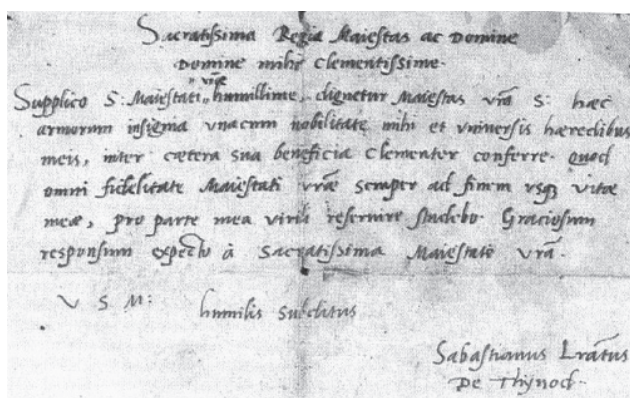 Sacratissima Regia Maiestas ac Domine
Domine mihi clementissime.
vrãe
Supplico S: Maiestati humillime, dignetur Maiestas vrã S: hæc
armorum insignia vnacum nobilitate mihi et vniuersis hæredibus
meis, inter cætera sua beneficia clementer conferre. Quod
omni fidelitate Maiestati vrãe semper ad finem vsq₃ vitæ
meæ, pro parte mea virili reseruire studebo. Graciosum
responsum expecto à Sacratissima Maiestate vrã.
V S M:
humilis subditus
Sabastianus
De Thijnod.